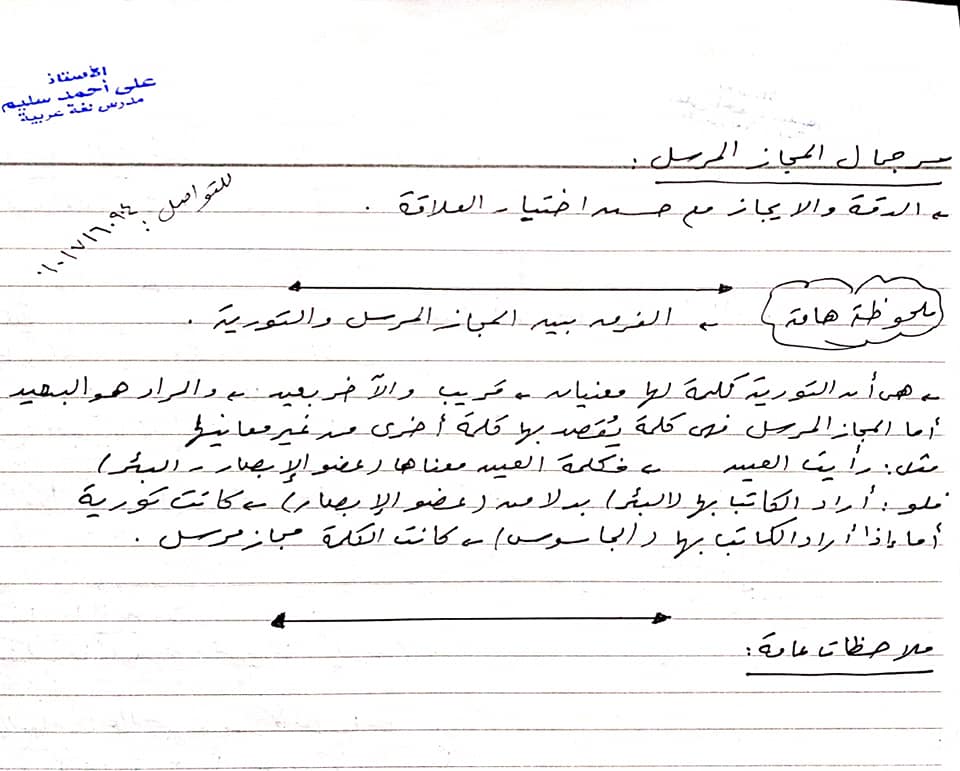 الأستاذ
على أحمد سليم
مدرس لغة عربية
سر جمال المجاز المرسل :
الدقة والايجاز مع حسن اختيار العلاقة .
للتواصل :
ملحوظة هامة
الفرق بين المجاز المرسل والتورية .
هى أن التورية كلمة لها معنيان قريب والآخر بعيد والمراد هو البعيد
أما المجاز المرسل فهى كلمة يُقصد بها كلمة أخرى من غير معانيها
مثل : رأيت العين فكلمة العين معناها (عضو الإبصار - البئر)
فلو : أراد الكاتب بها (البئر) بدلا من (عضو الإبصار) كانت تورية
أما إذا أراد الكاتب بها (الجاسوس) كانت الكلمة مجاز مرسل .
ملاحظات عامة :